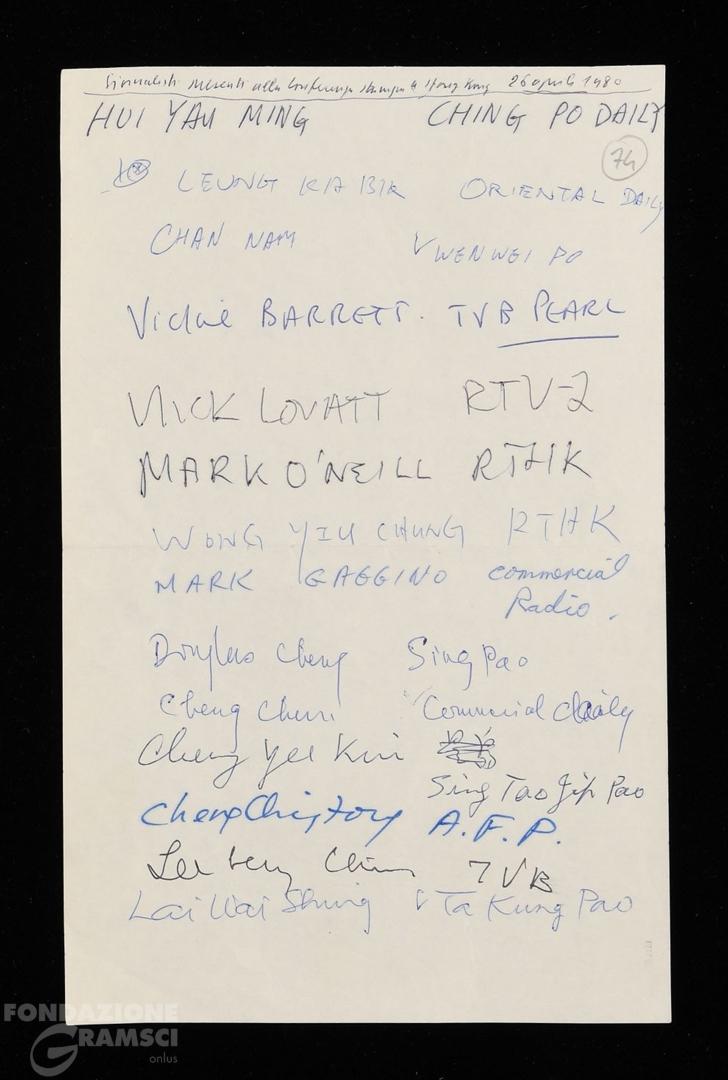 Giornalisti presenti alla conferenza stampa a Hong Kong 26 aprile 1980
HUI YAU MING CHING PO DAILY
74
LEUNG KA BIK ORIENTAL DAILY
CHAN NAM WENWEI PO
Vickie BARRETT. TVB PEARL
NICK LOVATT RTV-2
MARK O'NEILL RTHK
WONG YIU CHUNG RTHK
MARK GAGGINO commercial
Radio.
Douglas Cheng Sing Pao
Cheng Commercial daily
Cheng Yee
Sing Tao Jih Pao
Cheng A.F.P.
Lee TVB
Lai Wai Shing Ta Kung Pao
FONDAZIONE
GRAMSCI
onlus